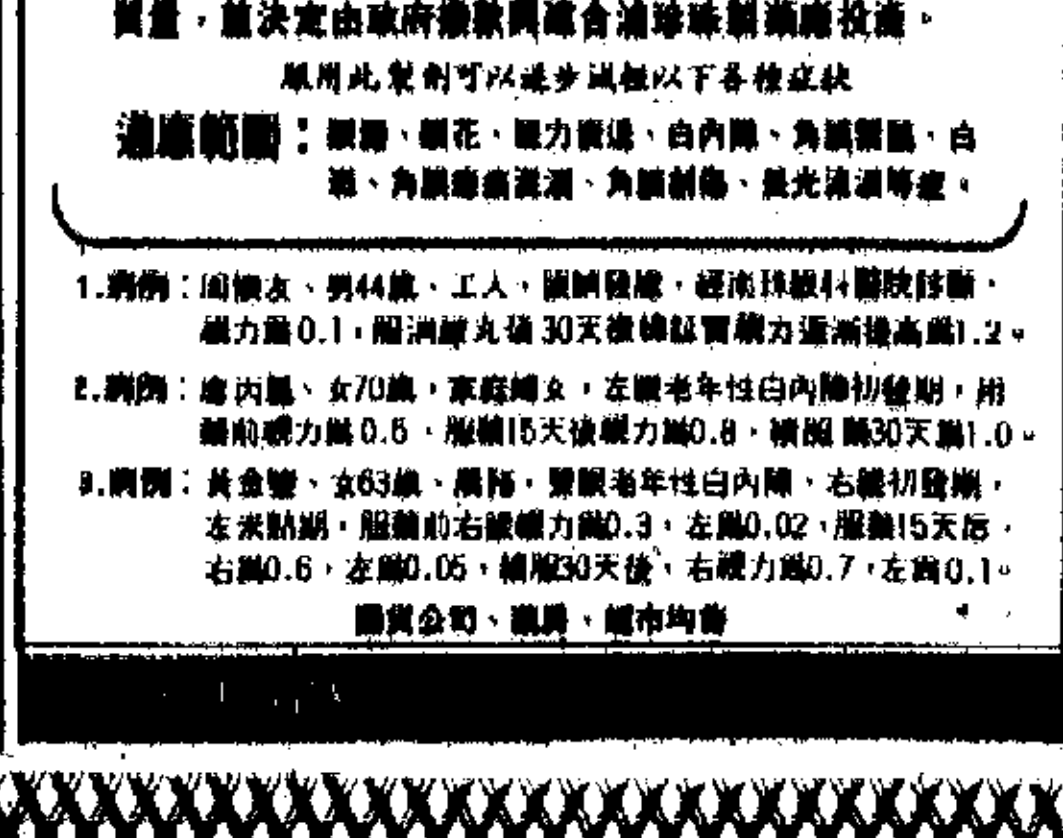 質量，並決定由政府撥款開建合浦珍珠製藥廠投產。
服用此製劑可以逐步減輕以下各種症狀
適應範圍：眼、眼花、視力衰退、白內障、角膜、白
、角膜潰瘍、角膜創傷、流淚等症。
1.病例：周懷友、男44歲、工人，經南珠眼科醫院診斷，
視力為0.1，服丸後30天後視力逐漸提高為1.2。
2.病例：丙、女70歲，家庭婦女，左眼老年性白內障初發期，用
藥前視力為0.6，服藥15天後視力為0.8，續服藥30天為1.0。
3.病例：黃金、女63歲、，雙眼老年性白內障，右眼初發期，
左未熟期，服藥前右眼視力為0.3，左為0.02，服藥15天后，
右為0.6，左為0.05，續服30天後，右視力為0.7，左為0.1。
國貨公司、藥房、超市均售